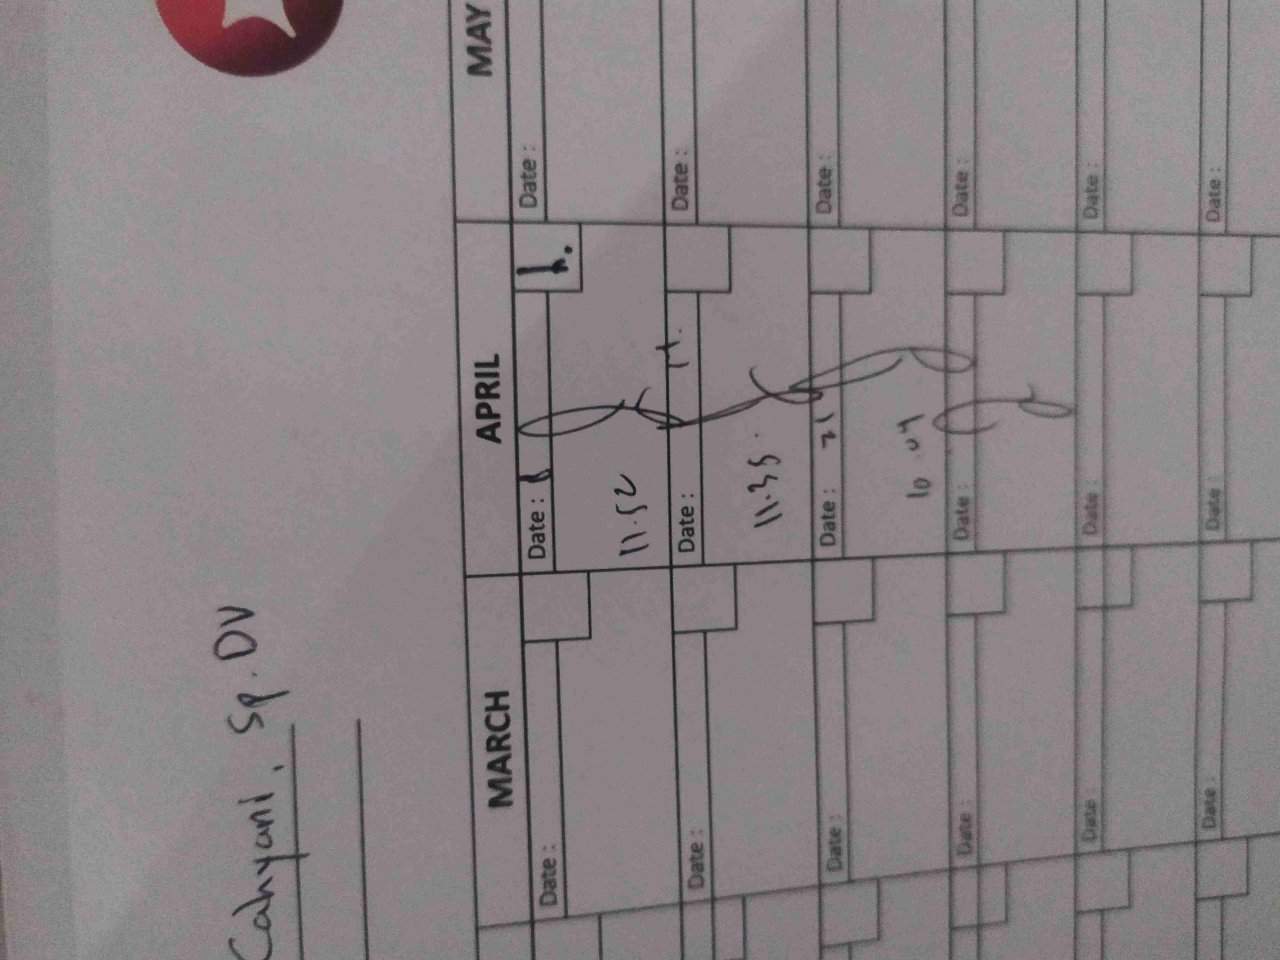 Cahyani, Sp.DV
MARCH APRIL MAY
Date : Date : 8 Date :
11.52
Date : Date : 14. Date :
11.35.
Date : Date : 21 Date :
10.04
Date : Date : Date :
Date : Date : Date :
Date : Date : Date :